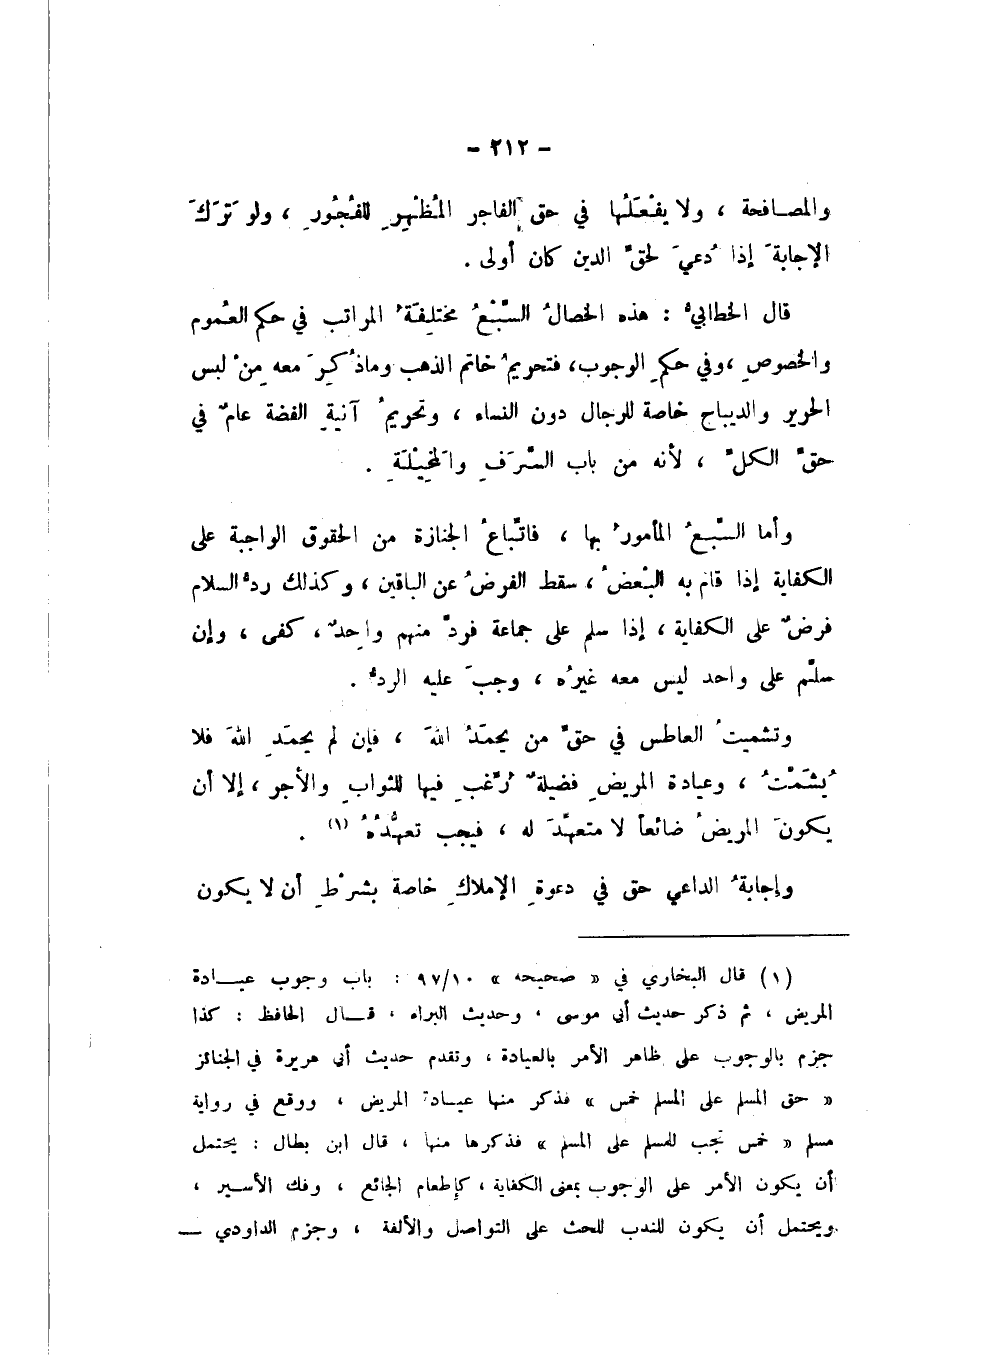 - ٢١٢ -
والمصافحة ، ولا يفْعَلُها في حق الفاجر المُظْهِرِ للفُجُورِ ، ولو تَرَكَ
الإجابةَ إذا دُعيَ لحقِّ الدين كان أولى .
قال الخطابيُّ : هذه الخصالُ السَّبْعُ مختلِفَةُ المراتب في حكم العُموم
والخصوصِ ، وفي حكمِ الوجوب ، فتحريمُ خاتم الذهب وما ذُكِرَ معه مِنْ لبس
الحرير والديباج خاصة للرجال دون النساء ، وتحريمُ آنيةِ الفضة عامٌ في
حقِّ الكلِّ ، لأنه من باب السَّرَفِ والمَخِيْلَةِ .
وأما السَّبعُ المأمورُ بها ، فاتِّباعُ الجنازة من الحقوق الواجبة على
الكفاية إذا قام به البْعضُ ، سقط الفرضُ عن الباقين ، وكذلك ردُّ السلام
فرضٌ على الكفاية ، إذا سلم على جماعة فردَّ منهم واحِدٌ ، كفى ، وإن
سلَّم على واحد ليس معه غيرُه ، وجبَ عليه الردُّ .
وتشميتُ العاطس في حقِّ من يحمَدُ اللهَ ، فإن لم يحمَدِ اللهَ فلا
يُشَمَّتْ ، وعيادة المريضِ فضيلةٌ رُغِّب فيها للثوابِ والأجر ، إلا أن
يكونَ المريضُ ضائعاً لا متعهِّدَ له ، فيجب تعهُّدُهُ (١) .
وإجابةُ الداعي حق في دعوةِ الإملاكِ خاصة بشرْطِ أن لا يكون
(١) قال البخاري في « صحيحه » ٩٧/١٠ : باب وجوب عيادة
المريض ، ثم ذكر حديث أبي موسى ، وحديث البراء ، قال الحافظ : كذا
جزم بالوجوب على ظاهر الأمر بالعيادة ، وتقدم حديث أبي هريرة في الجنائز
« حق المسلم على المسلم خمس » فذكر منها عيادة المريض ، ووقع في رواية
مسلم « خمس تجب للمسلم على المسلم » فذكرها منها ، قال ابن بطال : يحتمل
أن يكون الأمر على الوجوب بمعنى الكفاية ، كإطعام الجائع ، وفك الأسير ،
ويحتمل أن يكون للندب للحث على التواصل والألفة ، وجزم الداودي —